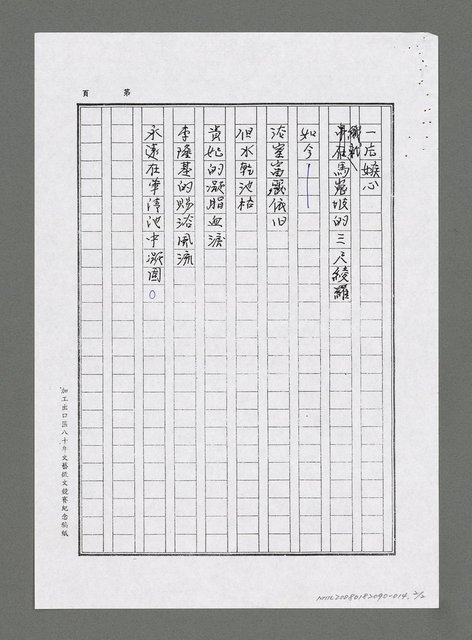 第 頁
一后嫉心
在馬嵬坡的三尺綾羅
如今——
浴室富麗依旧
但水乾池枯
貴妃的凝脂血淚
李隆基的賜浴風流
永遠在華清池中凝固。
加工出口區八十年文藝徵文競賽紀念稿紙
NMTL20080182090-014. 2/2